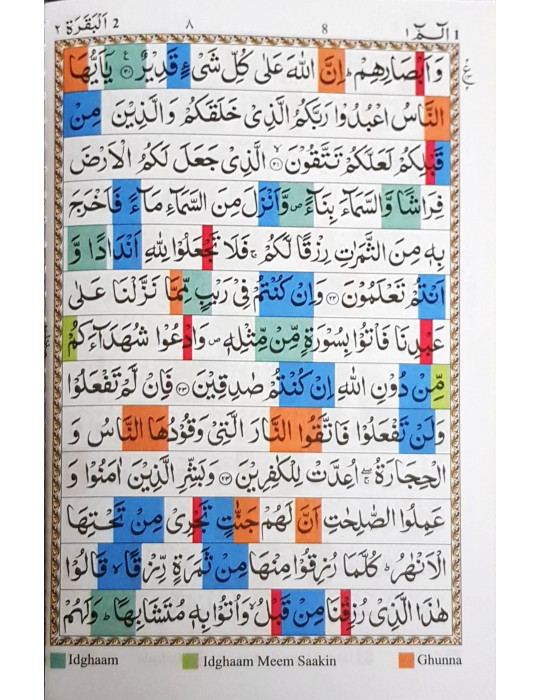 2 اَلْبَقَرَة ٢
٨
8
الٓـمّٓ ١ 1
وَاَبْصَارِهِمْ ؕ اِنَّ اللّٰهَ عَلٰى كُلِّ شَیْءٍ قَدِیْرٌ ﴿۲۰﴾ یٰۤاَیُّهَا
النَّاسُ اعْبُدُوْا رَبَّكُمُ الَّذِیْ خَلَقَكُمْ وَالَّذِیْنَ مِنْ
قَبْلِكُمْ لَعَلَّكُمْ تَتَّقُوْنَ ﴿۲۱﴾ۙ الَّذِیْ جَعَلَ لَكُمُ الْاَرْضَ
فِرَاشًا وَّالسَّمَآءَ بِنَآءً ۪ وَّاَنْزَلَ مِنَ السَّمَآءِ مَآءً فَاَخْرَجَ
بِهٖ مِنَ الثَّمَرٰتِ رِزْقًا لَّكُمْ ۚ فَلَا تَجْعَلُوْا لِلّٰهِ اَنْدَادًا وَّ
اَنْتُمْ تَعْلَمُوْنَ ﴿۲۲﴾ وَاِنْ كُنْتُمْ فِیْ رَیْبٍ مِّمَّا نَزَّلْنَا عَلٰى
عَبْدِنَا فَاْتُوْا بِسُوْرَةٍ مِّنْ مِّثْلِهٖ ۪ وَادْعُوْا شُهَدَآءَكُمْ
مِّنْ دُوْنِ اللّٰهِ اِنْ كُنْتُمْ صٰدِقِیْنَ ﴿۲۳﴾ فَاِنْ لَّمْ تَفْعَلُوْا
وَلَنْ تَفْعَلُوْا فَاتَّقُوا النَّارَ الَّتِیْ وَقُوْدُهَا النَّاسُ وَ
الْحِجَارَةُ ۖۚ اُعِدَّتْ لِلْكٰفِرِیْنَ ﴿۲۴﴾ وَبَشِّرِ الَّذِیْنَ اٰمَنُوْا وَ
عَمِلُوا الصّٰلِحٰتِ اَنَّ لَهُمْ جَنّٰتٍ تَجْرِیْ مِنْ تَحْتِهَا
الْاَنْهٰرُ ؕ كُلَّمَا رُزِقُوْا مِنْهَا مِنْ ثَمَرَةٍ رِّزْقًا ۙ قَالُوْا
هٰذَا الَّذِیْ رُزِقْنَا مِنْ قَبْلُ ۙ وَاُتُوْا بِهٖ مُتَشَابِهًا ؕ وَلَهُمْ
Idghaam
Idghaam Meem Saakin
Ghunna